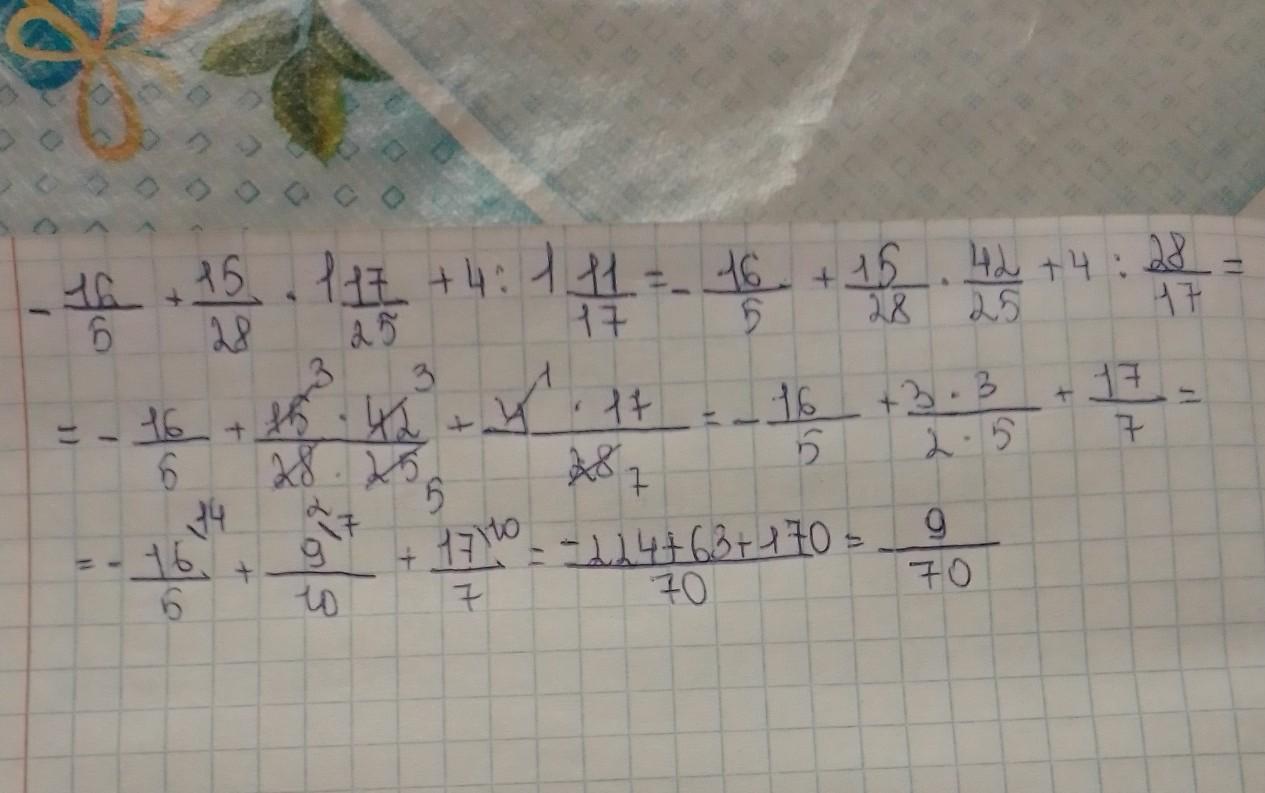 - 16/5 + 15/28 · 1 17/25 + 4 : 1 11/17 = - 16/5 + 15/28 · 42/25 + 4 : 28/17 =
= - 16/5 + 15 3 · 42 3 / 28 2 · 25 5 + 4 1 · 17 / 28 7 = - 16/5 + 3 · 3 / 2 · 5 + 17/7 =
= - 16/5 \14 + 9/10 \7 + 17/7 \10 = -224+63+170 / 70 = 9/70